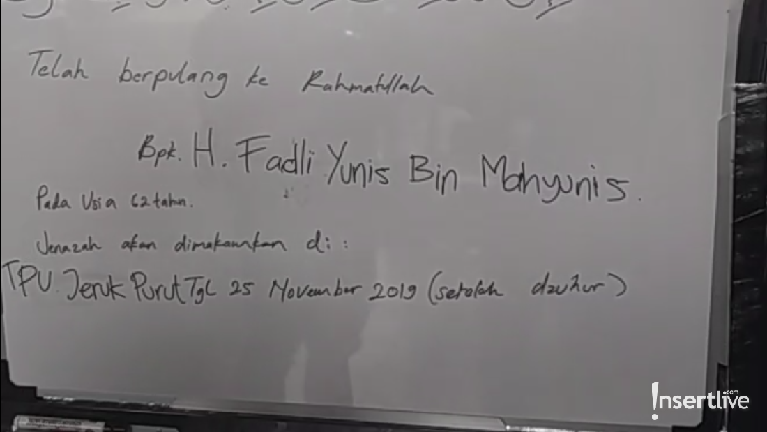 Telah berpulang ke Rahmatullah
Bpk. H. Fadli Yunis Bin Mahyunis.
Pada Usia 62 tahn.
Jenazah akan dimakamkan di :
TPU. Jeruk Purut Tgl 25 November 2019 (setelah dzuhur)
!nsertlive
.com